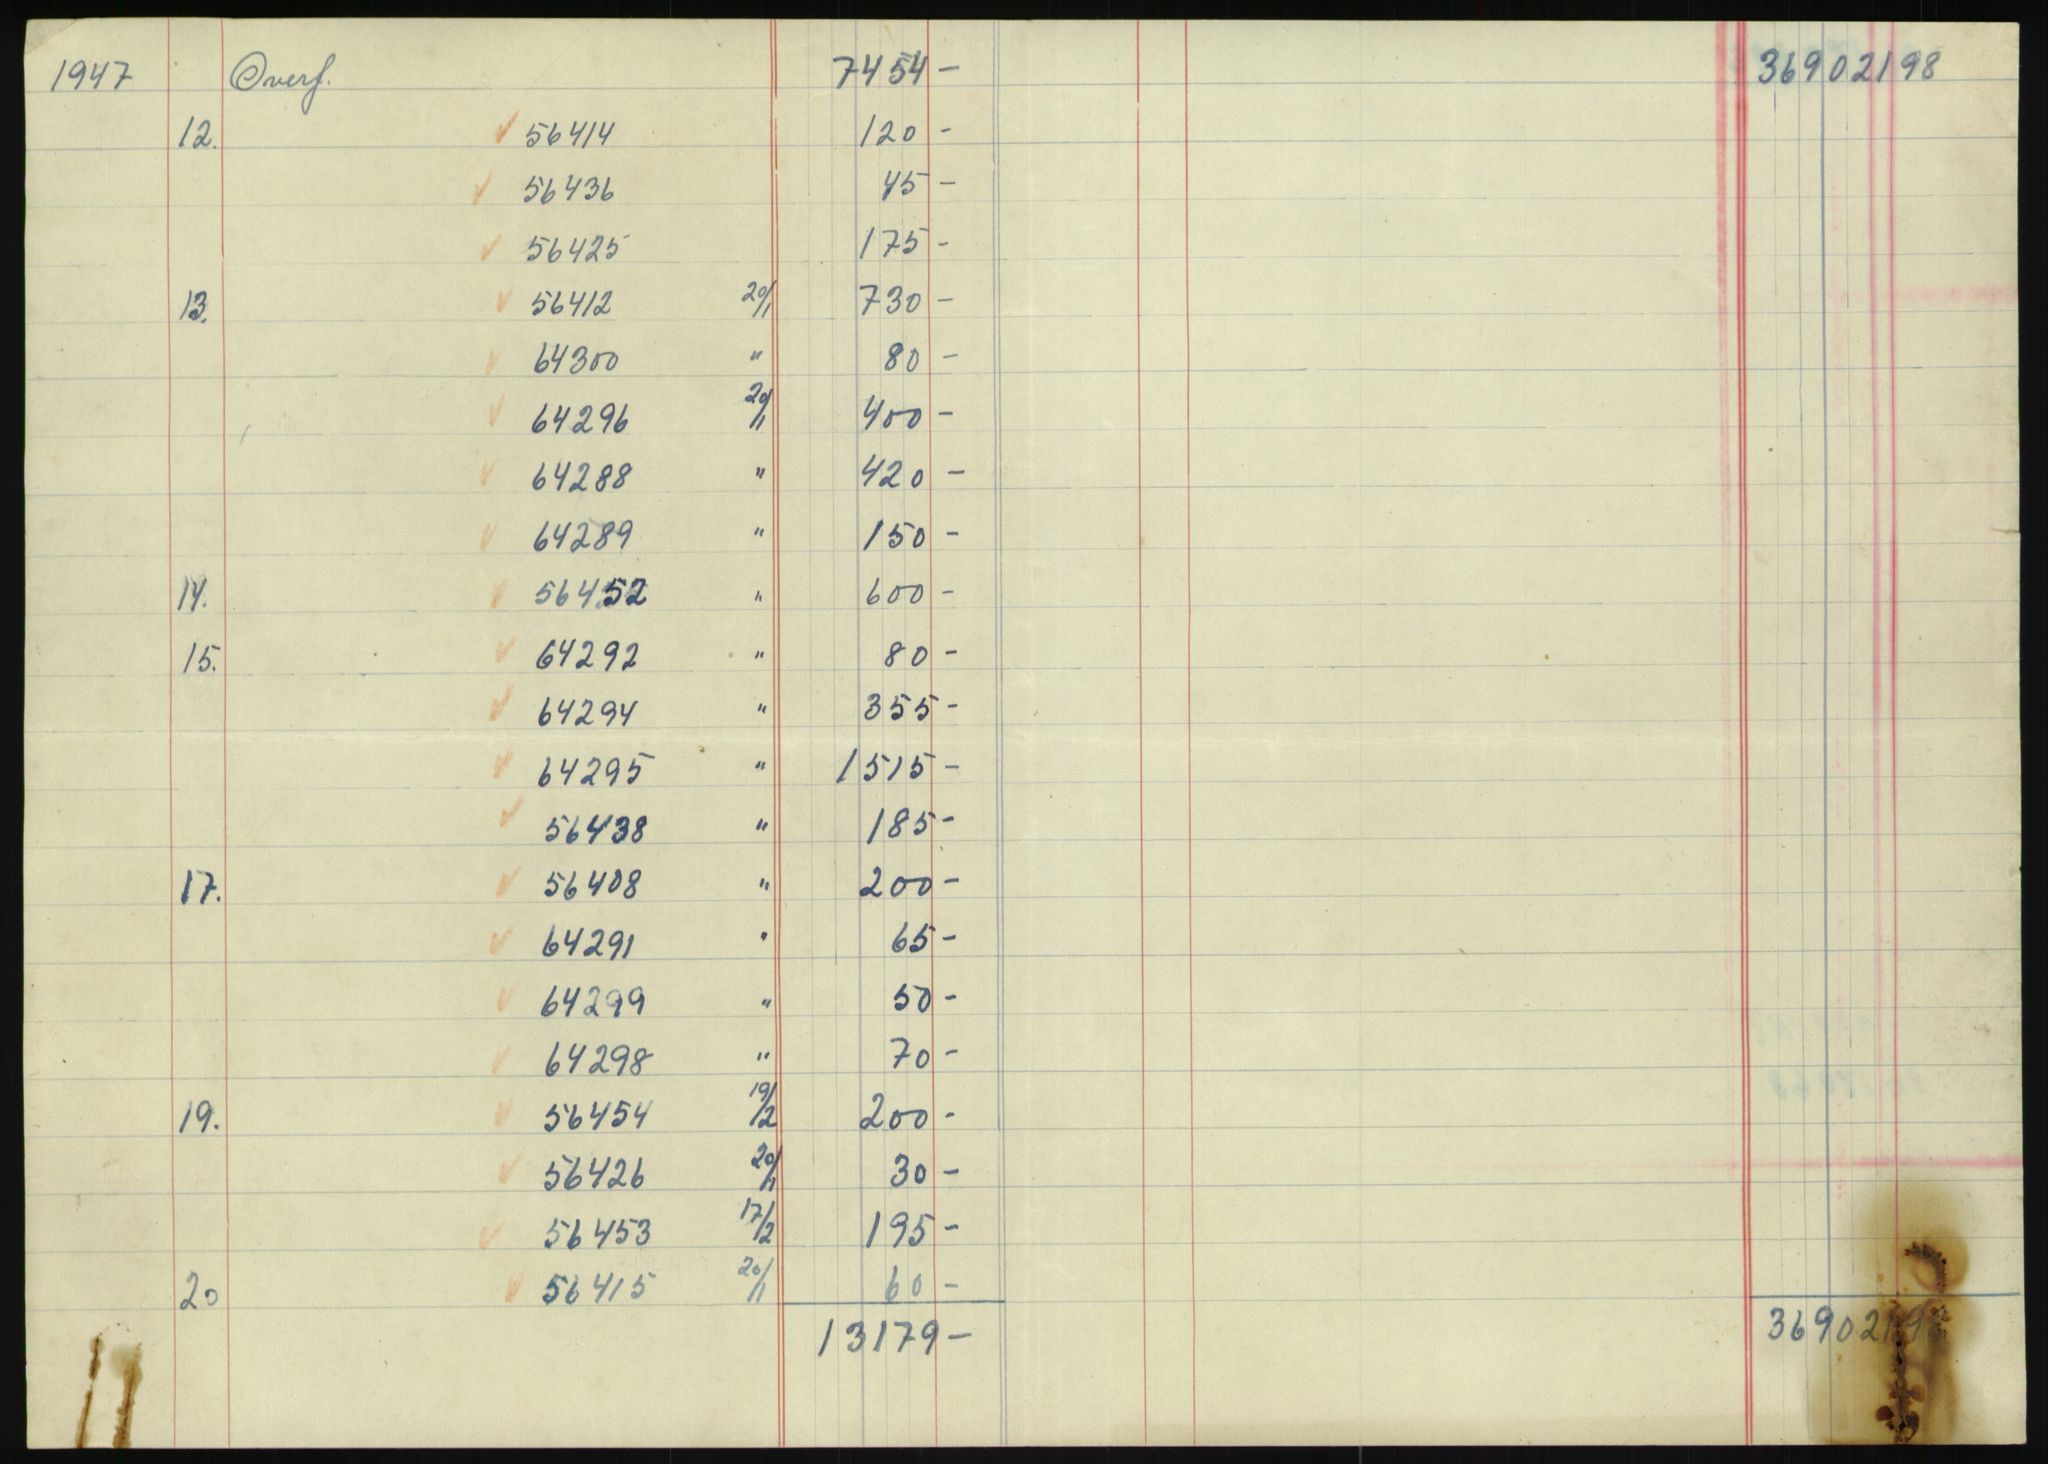 1947 Overf. 7454 - 36902198
12. ✓ 56414 120 -
✓ 56436 45 -
✓ 56425 175 -
13. ✓ 56412 20/1 730 -
✓ 64300 " 80 -
✓ 64296 20/1 400 -
✓ 64288 " 420 -
✓ 64289 " 150 -
14. ✓ 56452 " 600 -
15. ✓ 64292 " 80 -
✓ 64294 " 355 -
✓ 64295 " 1515 -
✓ 56438 " 185 -
17. ✓ 56408 " 200 -
✓ 64291 " 65 -
✓ 64299 " 50 -
✓ 64298 " 70 -
19. ✓ 56454 19/2 200 -
✓ 56426 20/1 30 -
✓ 56453 17/2 195 -
20 ✓ 56415 20/1 60 -
13179 - 36902198